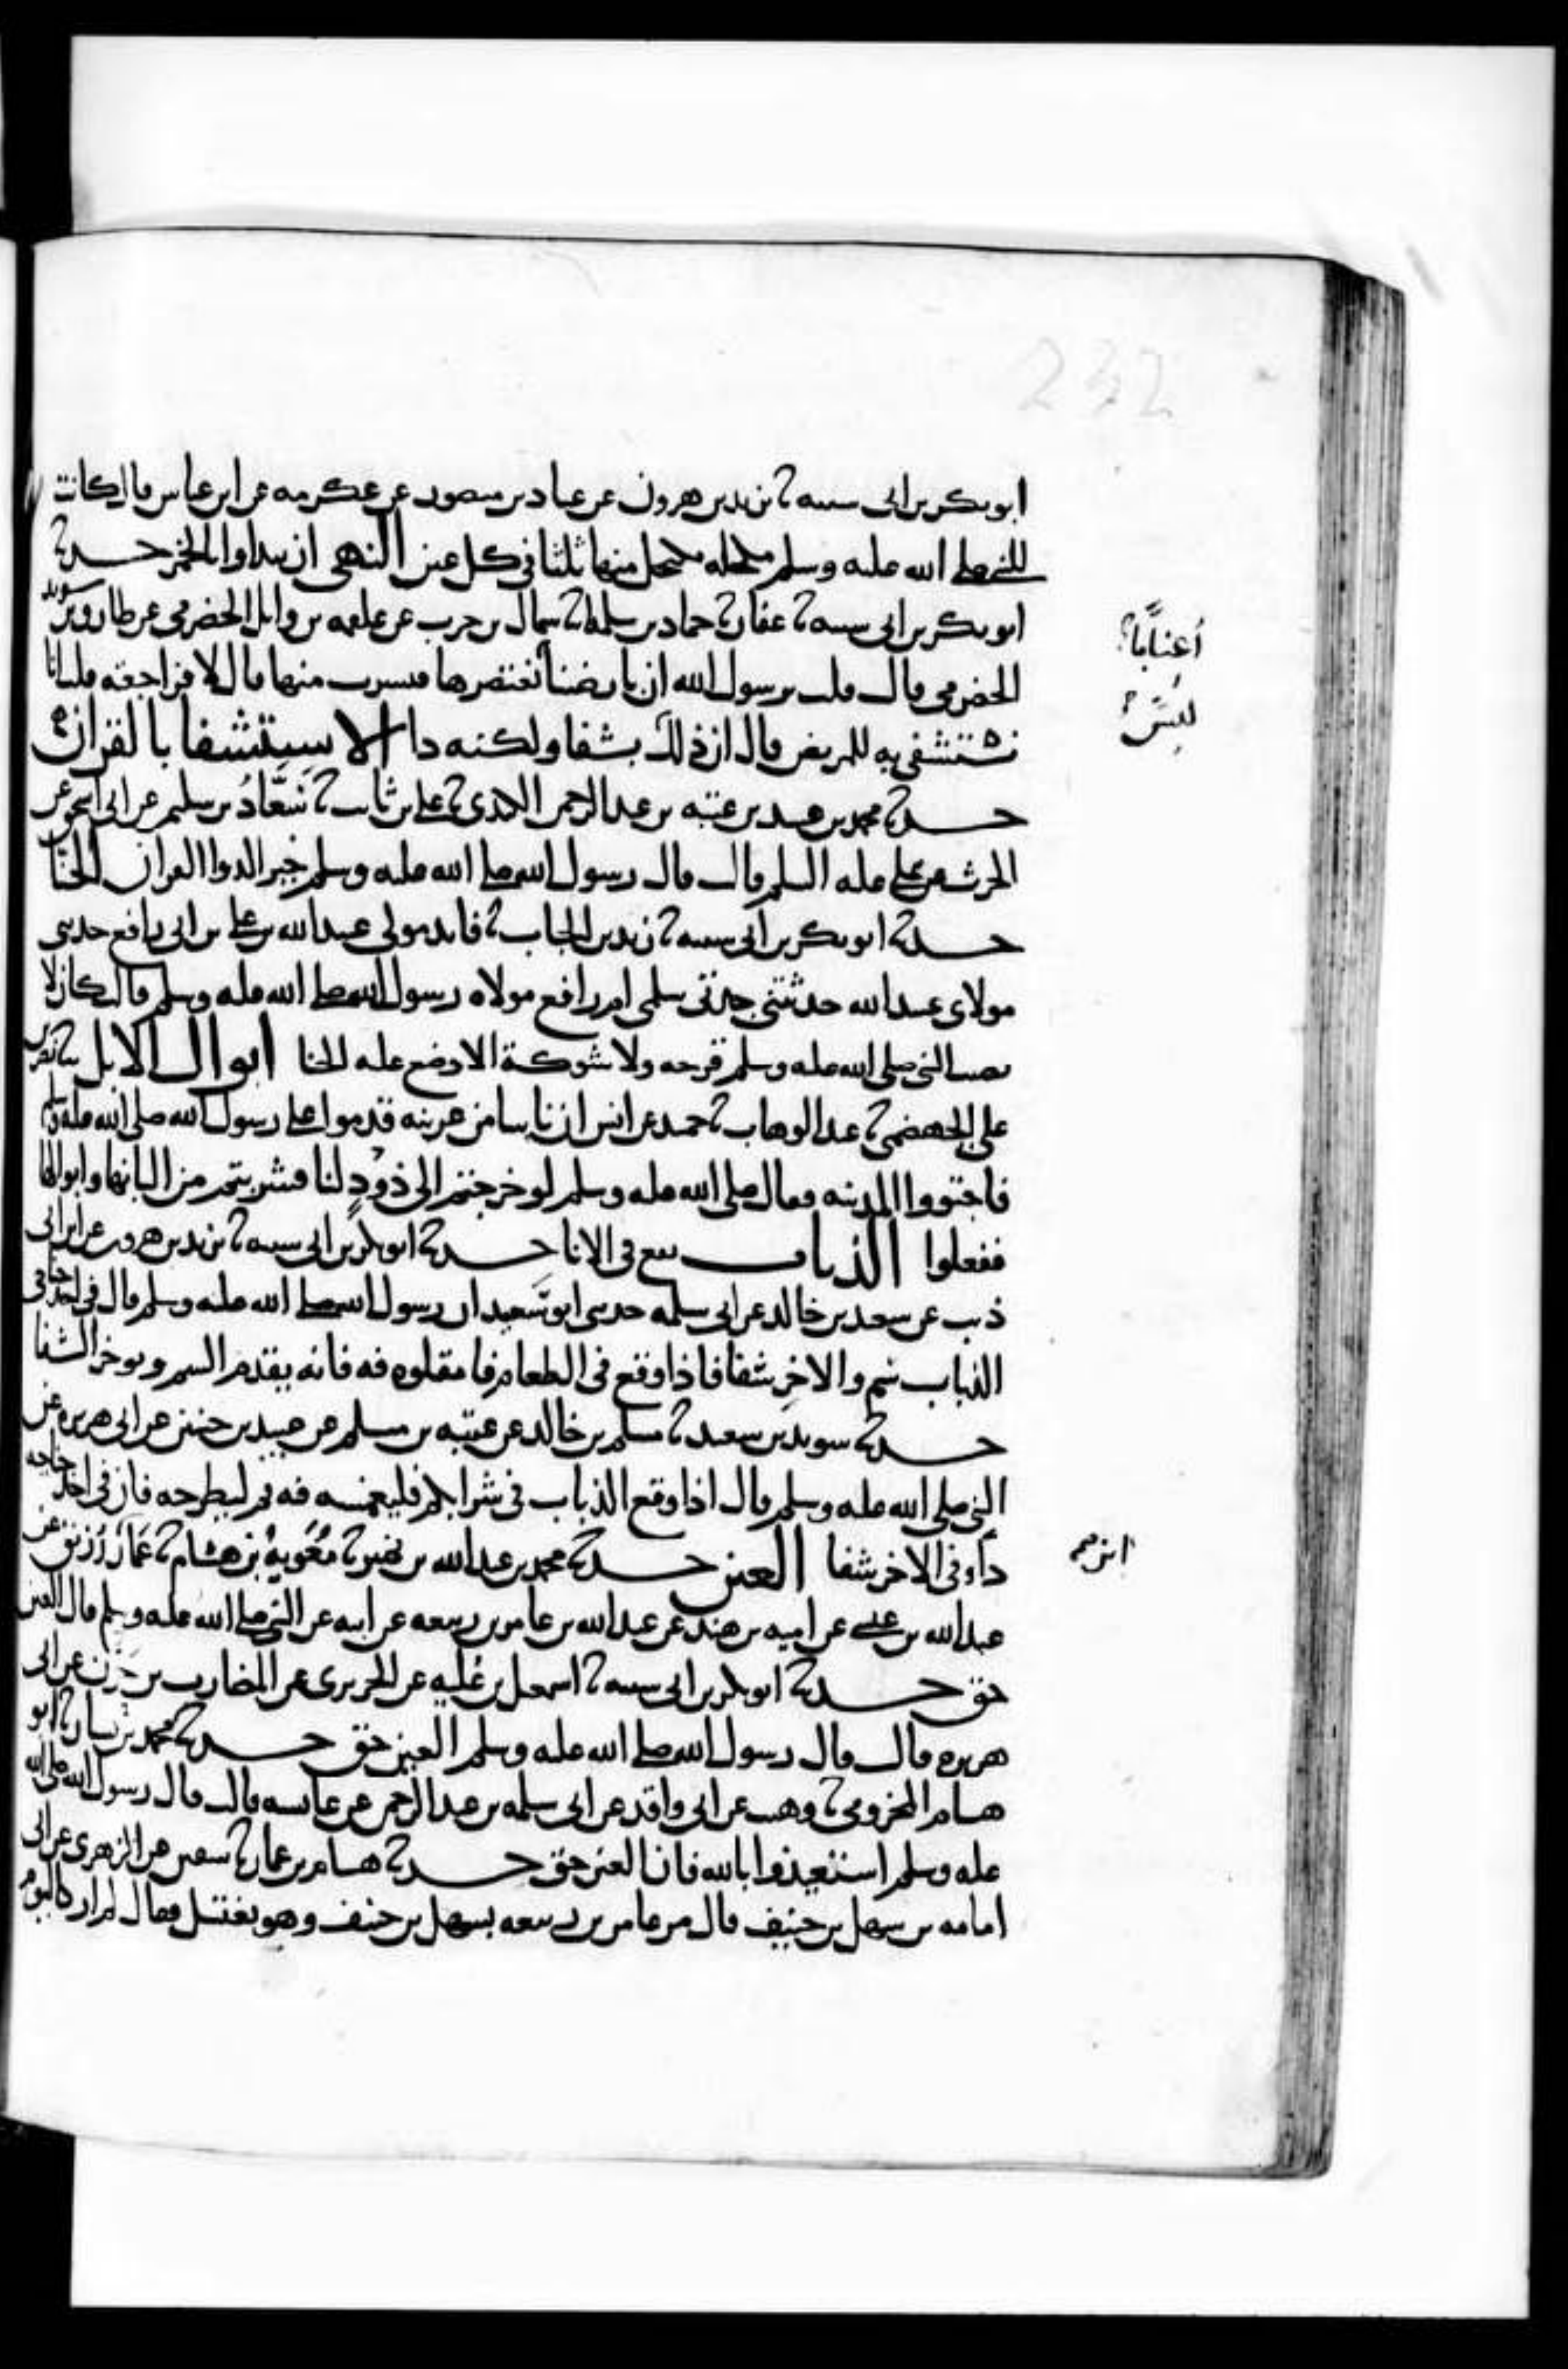 232
ابو بكر بن ابى شيبه ثنا يزيد بن هرون عن عباد بن منصور عن عكرمه عن ابن عباس قال كانت
للنبى صلى الله عليه وسلم مكحله يكتحل منها ثلثا فى كل عين النهى ان يتداوا بالخمر حدثنا
ابو بكر بن ابى شيبه ثنا عفان ثنا حماد بن سلمة ثنا سماك بن حرب عن علقمه بن وايل الحضرمى عن طارق بن سويد
الحضرمى قال قلت يرسول الله ان بارضنا نعتصرها فنشرب منها قال لا فراجعته قلت انا
نستشفى به للمريض قال ان ذلك بشفا ولكنه دا الاستشفا بالقران
حدثنا محمد بن عبيد بن عتبه بن عبد الرحمن الكندى ثنا على بن ثابت ثنا سَعّادُ بن سليم عن ابى اسحق عن
الحرث عن على عليه السلم قال قال رسول الله صلى الله عليه وسلم خير الدوا القران الحنا
حدثنا ابو بكر بن ابى شيبه ثنا زيد بن الحباب ثنا فايد مولى عبيد الله بن على بن ابى رافع حدثنى
مولاى عبيد الله حدثتنى جدتى سلمى ام رافع مولاه رسول الله صلى الله عليه وسلم قالت كان لا
يصيب النبى صلى الله عليه وسلم قرحه ولا شوكة الا وضع عليه الحنا ابوال الابل ثنا نصر بن
على الجهضمى ثنا عبد الوهاب ثنا حميد عن انس ان ناسا من عرينه قدموا على رسول الله صلى الله عليه وسلم
فاجتووا المدينه فقال صلى الله عليه وسلم لو خرجتم الى ذَوْدٍ لنا فشربتم من البانها وابوالها
ففعلوا الذباب يقع فى الانا حدثنا ابو بكر بن ابى شيبه ثنا يزيد بن هرون عن ابن ابى
ذيب عن سعيد بن خالد عن ابى سلمه حدثنى ابو سَعيد ان رسول الله صلى الله عليه وسلم قال فى احد جناحى
الذباب سُم والاخر شفا فاذا وقع فى الطعام فامقلوه فيه فانه يقدم السم ويوخر الشفا
حدثنا سويد بن سعيد ثنا مسلم بن خالد عن عتبه بن مسلم عن عبيد بن حنين عن ابى هريره عن
النبى صلى الله عليه وسلم قال اذا وقع الذباب فى شرابكم فليغمسه فيه ثم ليطرحه فان فى احد جناحيه
داء وفى الاخر شفا العين حدثنا محمد بن عبد الله بن نمير ثنا مُعَويةُ بن هشام ثنا عَمّارُ زُريق عن
عبد الله بن عيسى عن اميه بن هند عن عبد الله بن عامر بن ربيعه عن ابيه عن النبى صلى الله عليه وسلم قال العين
حق حدثنا ابو بكر بن ابى شيبه ثنا اسمعيل بن عُليه عن الجريرى عن المضارب بن حَزْن عن ابى
هريره قال قال رسول الله صلى الله عليه وسلم العين حق حدثنا محمد بن بشار ثنا ابو
هشام المخزومى ثنا وهيب عن ابى واقد عن ابى سلمه بن عبد الرحمن عن عايشه قالت قال رسول الله صلى الله
عليه وسلم استعيذوا بالله فان العين حق حدثنا هشام بن عمار ثنا سفين عن الزهرى عن ابى
امامه بن سهل بن حنيف قال مر عامر بن ربيعه بسهل بن حنيف وهو يغتسل فقال لم ار كاليوم
أعنابًا
ليسَ
ابن صح